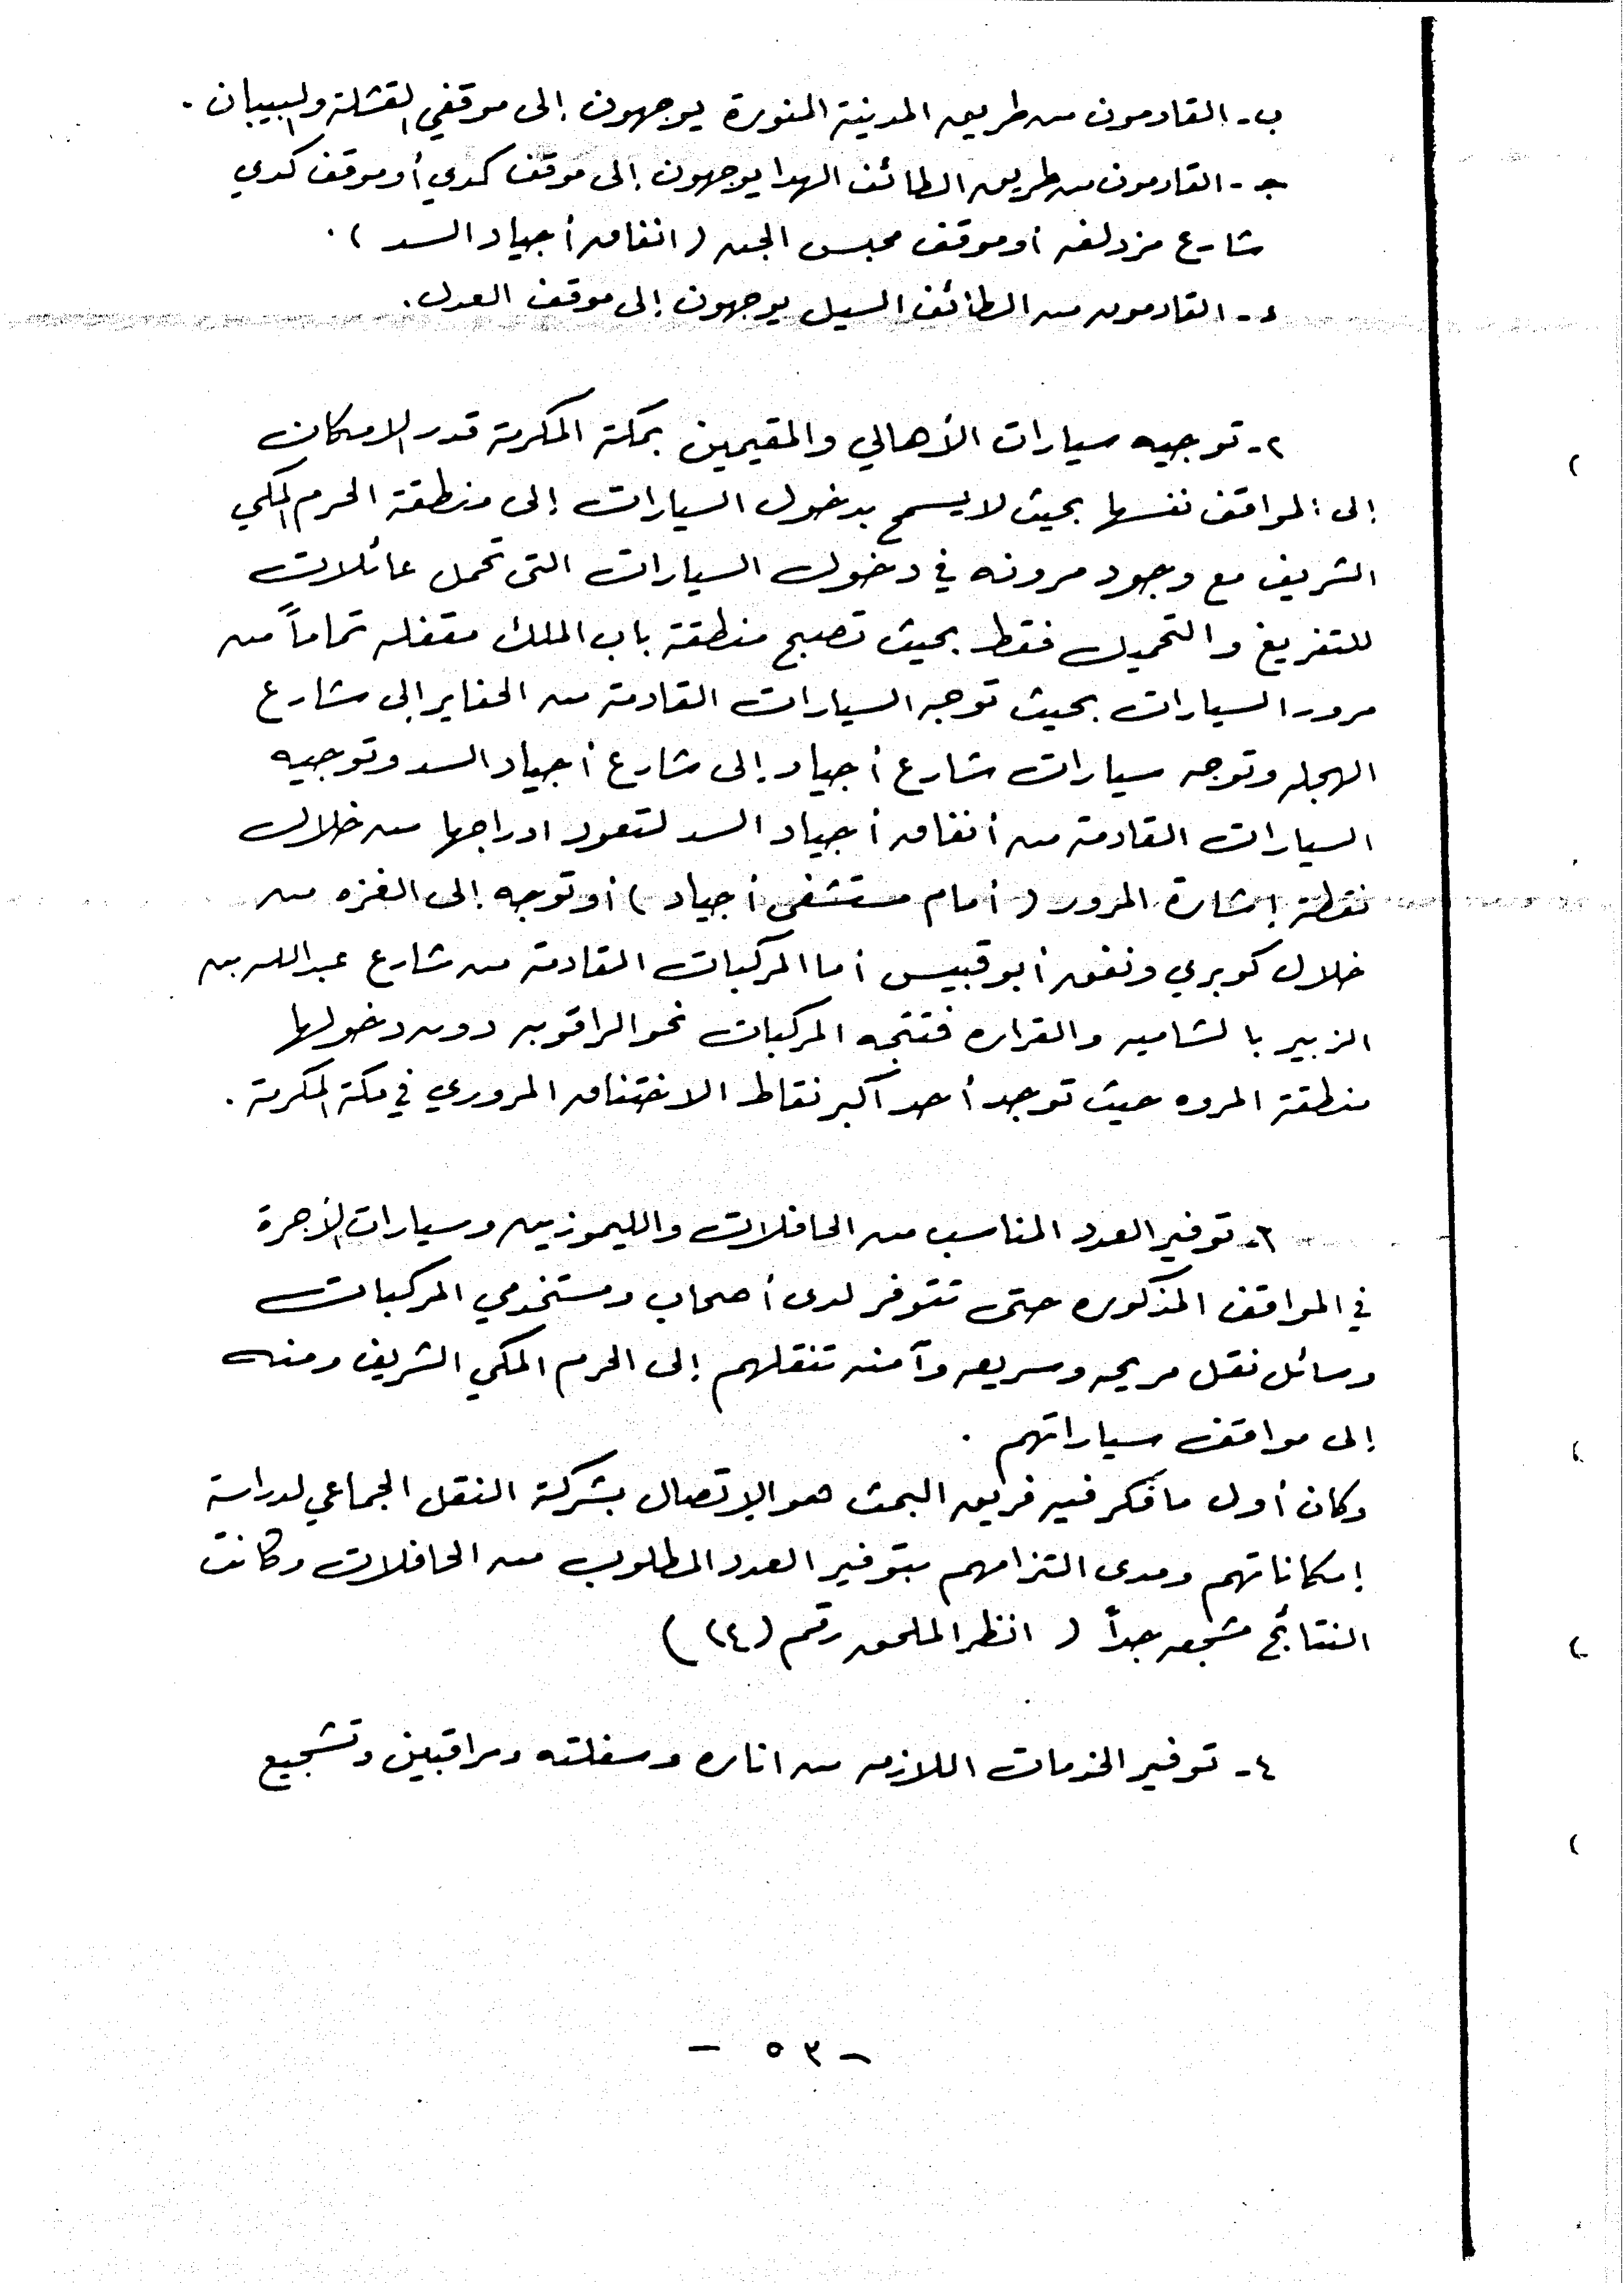 ب - القادمون من طريق المدينة المنورة يوجهون إلى موقفي القشلة والبيبان .
جـ - القادمون من طريق الطائف الهدا يوجهون إلى موقف كدي أو موقف كدي
شارع مزدلفه أو موقف محبس الجن ( انفاق أجياد السد ) .
د - القادمون من الطائف السيل يوجهون إلى موقف العدل .
٢ - توجيه سيارات الأهالي والمقيمين بمكة المكرمة قدر الامكان
إلى المواقف نفسها بحيث لا يسمح بدخول السيارات إلى منطقة الحرم المكي
الشريف مع وجود مرونه في دخول السيارات التى تحمل عائلات
للتفريغ والتحميل فقط بحيث تصبح منطقة باب الملك مقفله تماماً من
مرور السيارات بحيث توجه السيارات القادمة من الحفاير إلى شارع
الهجله وتوجه سيارات شارع أجياد إلى شارع أجياد السد وتوجيه
السيارات القادمة من أنفاق أجياد السد لتعود ادراجها من خلال
نقطة إشارة المرور ( أمام مستشفى أجياد ) أو توجه إلى الغزه من
خلال كوبري ونفق أبو قبيس أما المركبات القادمة من شارع عبدالله بن
الزبير بالشاميه والقراره فتتجه المركبات نحو الراقوبه دون دخولها
منطقة المروه حيث توجد أحد أكبر نقاط الاختناق المروري في مكة المكرمة .
٣ - توفير العدد المناسب من الحافلات والليموزين وسيارات الأجرة
في المواقف المذكوره حتى تتوفر لدى أصحاب ومستخدمي المركبات
وسائل نقل مريحه وسريعه وآمنه تنقلهم إلى الحرم المكي الشريف ومنه
إلى مواقف سياراتهم .
وكان أول ما فكر فيه فريق البحث هو الإتصال بشركة النقل الجماعي لدراسة
إمكاناتهم ومدى التزامهم بتوفير العدد المطلوب من الحافلات وكانت
النتائج مشجعه جداً ( انظر الملحق رقم (١٤)
٤ - توفير الخدمات اللازمه من اناره وسفلته ومراقبين وتشجيع
- ٥٣ -